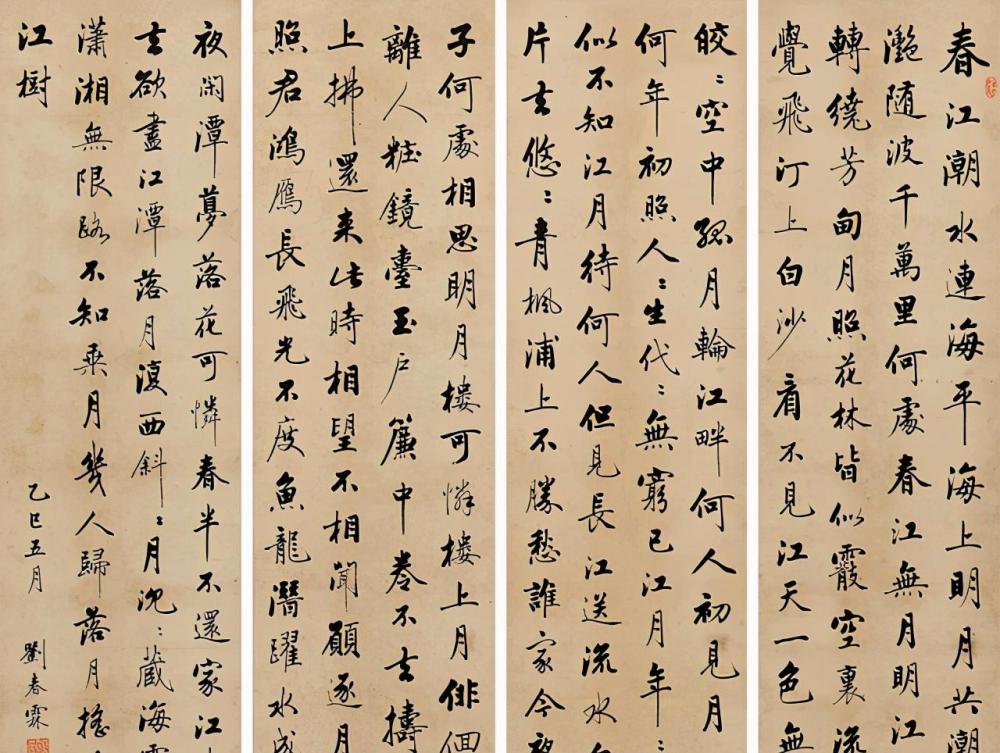 春江潮水連海平海上明月共潮
灔随波千萬里何處春江無月明江
轉繞芳甸月照花林皆似霰空裏流
覺飛汀上白沙看不見江天一色無
皎〻空中孤月輪江畔何人初見月
何年初照人〻生代〻無窮已江月年〻
似不知江月待何人但見長江送流水
片去悠〻青楓浦上不勝愁誰家今
子何處相思明月樓可憐樓上月俳佪
離人粧鏡臺玉戶簾中卷不去擣
上拂還来此時相望不相聞願逐月
照君鴻鴈長飛光不度魚龍潛躍水成
夜閑潭夢落花可憐春半不還家江
去欲盡江潭落月復西斜〻月沈〻藏海
瀟湘無限路不知乘月幾人歸落月搖
江樹
乙巳五月 劉春霖